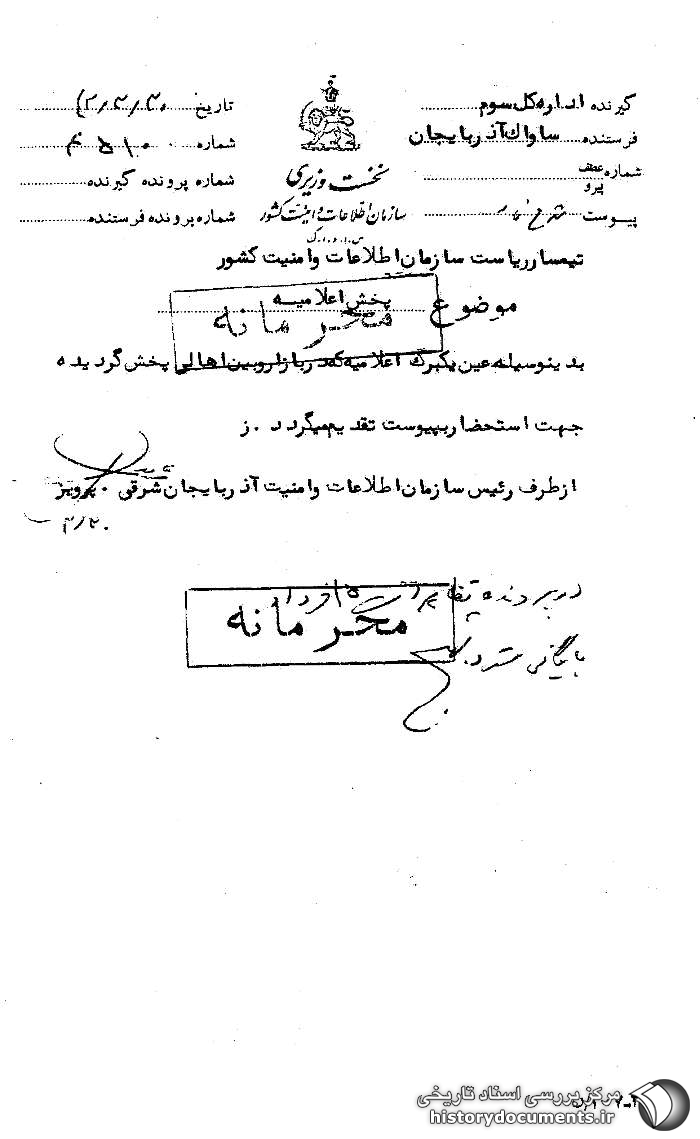 گیرنده اداره کل سوم
تاریخ
فرستنده ساواک آذربایجان
شماره
شماره عطف
پیرو
نخست وزیری
شماره پرونده گیرنده
پیوست
سازمان اطلاعات و امنیت کشور
شماره پرونده فرستنده
س.ا.و.ا.ک
تیمسار ریاست سازمان اطلاعات و امنیت کشور
موضوع پخش اعلامیه
محرمانه
بدینوسیله عین یکبرگ اعلامیه که در بازار و بین اهالی پخش گردیده
جهت استحضار بپیوست تقدیم میگردد . ز
از طرف رئیس سازمان اطلاعات و امنیت آذربایجان شرقی . پرویز
۳/۳۰
در پرونده
محرمانه
بایگانی شود
مرکز بررسی اسناد تاریخی
historydocuments.ir